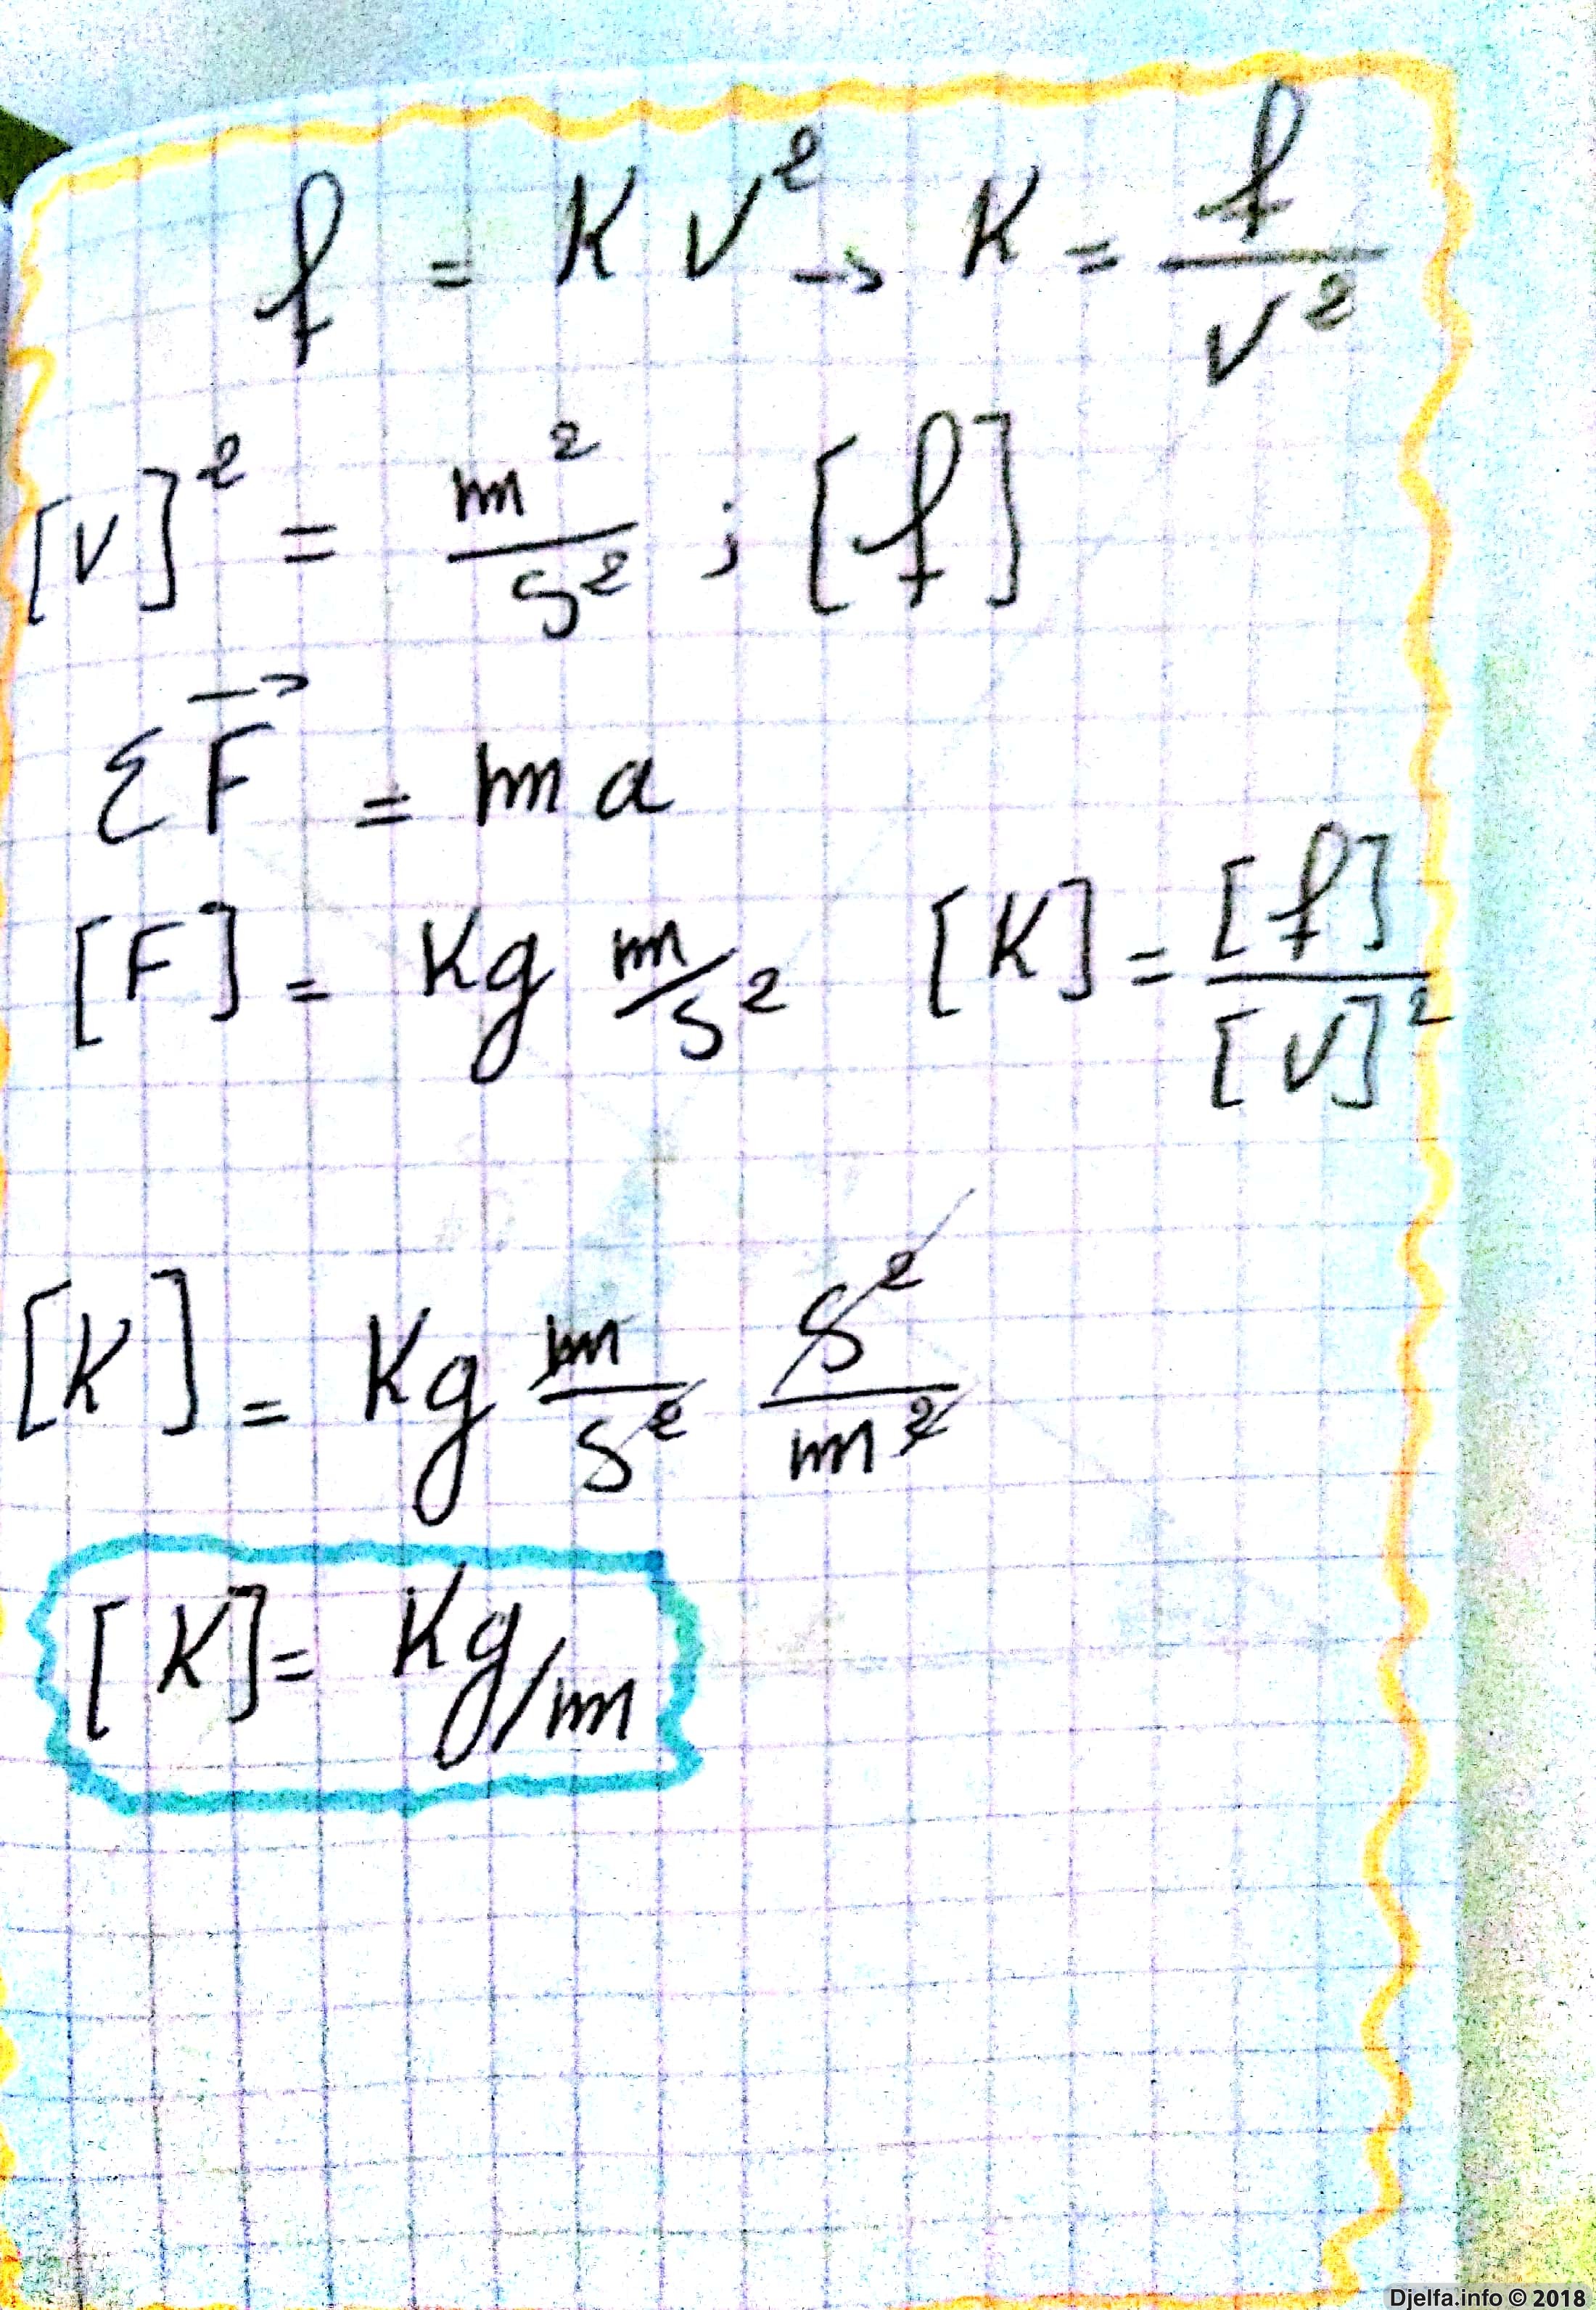 f = K V² → K = f / V²
[V]² = m² / s² ; [f]
Σ F⃗ = m a
[F] = Kg m/s² [K] = [f] / [V]²
[K] = Kg m / s² s² / m²
[K] = Kg/m
Djelfa.info © 2018